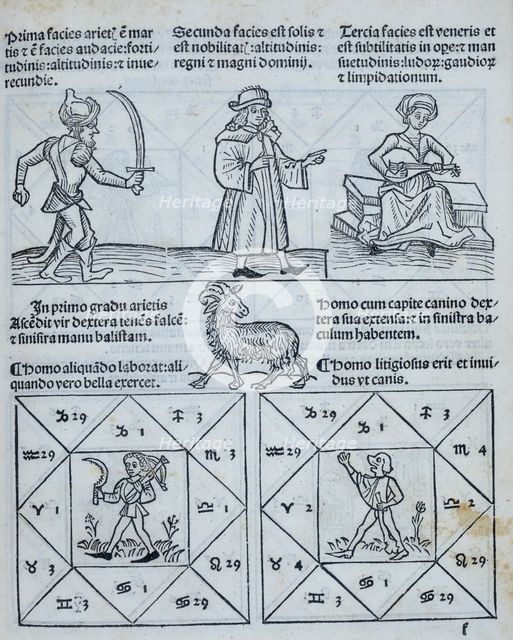 Prima facies arietꝭ ē mar
tis ⁊ ē facies audacie: forti
tudinis: altitudinis: ⁊ inue
recundie.
Secunda facies est solis ⁊
est nobilitatꝭ: altitudinis:
regni ⁊ magni dominij.
Tercia facies est veneris et
est subtilitatis in ope: ⁊ man
suetudinis: ludoꝝ: gaudioꝝ
⁊ limpidationum.
In primo gradu arietis
Ascēdit vir dextera tenēs falcē:
⁊ sinistra manu balistam.
Homo cum capite canino dex
tera sua extensa: ⁊ in sinistra ba
culum habentem.
¶ Homo aliquādo laborat: ali
quando vero bella exercet.
¶ Homo litigiosus erit et inui
dus vt canis.
♑ 29 ♑ 1 ♐ 3
♒ 29 ♏ 3
♈ 1 ♎ 1
♉ 3 ♌ 29
♊ 3 ♋ 1 ♋ 29
♑ 29 ♑ 1 ♐ 3
♒ 29 ♏ 4
♈ 2 ♎ 2
♉ 4 ♌ 29
♊ 3 ♋ 1 ♋ 29
f
Heritage
Heritage
Heritage
Heritage